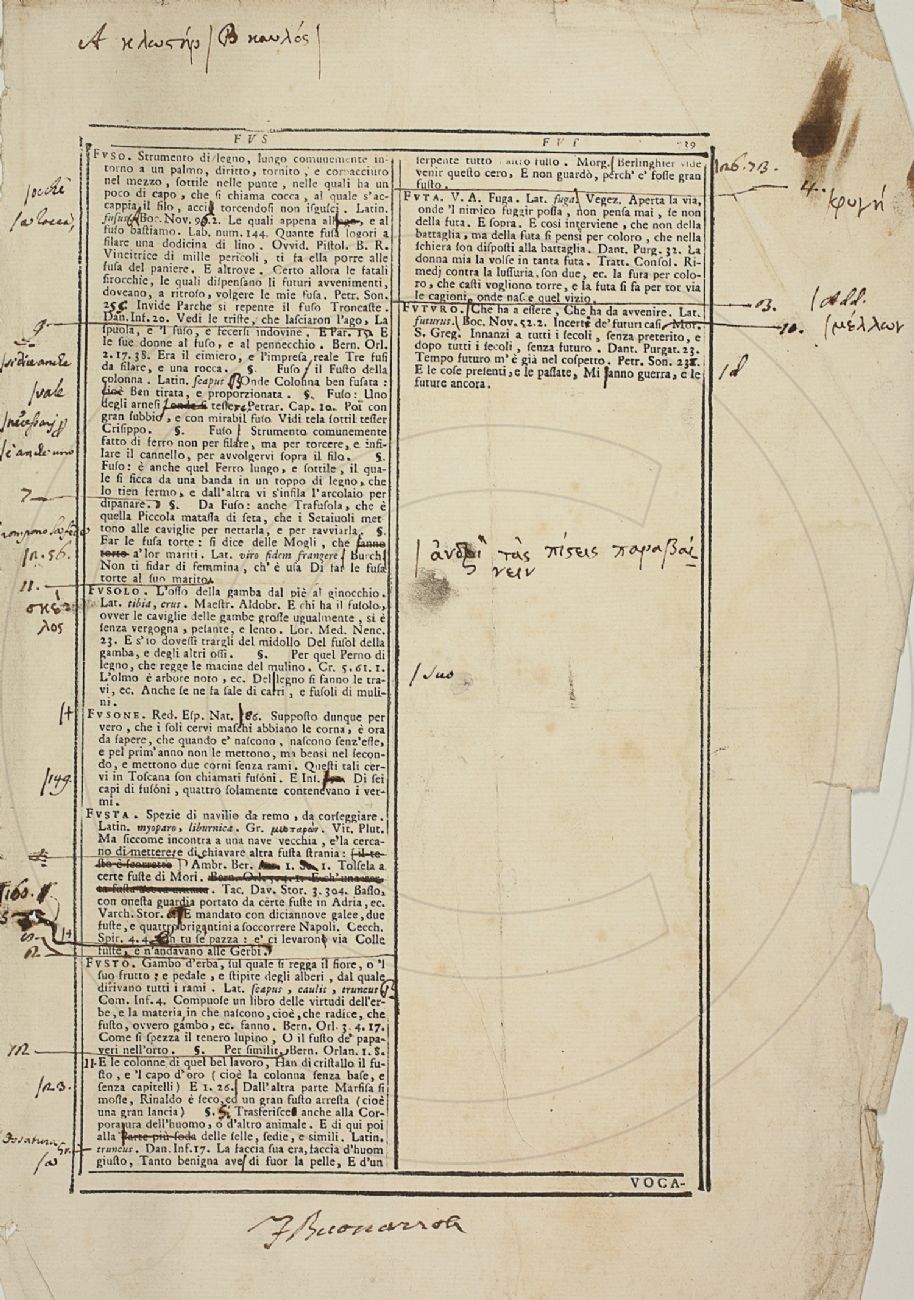 A κλωστήρ | B καυλός |
FVS
FVT
39
FVSO. Strumento di legno, lungo comunemente in-
torno a un palmo, diritto, tornito, e corpacciuto
nel mezzo, sottile nelle punte, nelle quali ha un
poco di capo, che si chiama cocca, al quale s'ac-
cappia il filo, acciò torcendosi non isgusci. Latin.
fusus. Boc. Nov. 96. 2. Le quali appena e al
fuso bastiamo. Lab. num. 144. Quante fusa logori a
filare una dodicina di lino. Ovvid. Pistol. B. R.
Vincitrice di mille pericoli, ti fa ella porre alle
fusa del paniere. E altrove. Certo allora le fatali
sirocchie, le quali dispensano li futuri avvenimenti,
doveano, a ritroso, volgere le mie fusa. Petr. Son.
256. Invide Parche sì repente il fuso Troncaste.
Dan. Inf. 20. Vedi le triste, che lasciaron l'ago, La
spuola, e 'l fuso, e fecersi indovine. E Par. 15. E
le sue donne al fuso, e al pennecchio. Bern. Orl.
2. 17. 38. Era il cimiero, e l'impresa reale Tre fusi
da filare, e una rocca. §. Fuso il Fusto della
colonna. Latin. scapus B Onde Colonna ben fusata:
cioè Ben tirata, e proporzionata. §. Fuso: Uno
degli arnesi onde si tessere Petrar. Cap. 10. Poi con
gran subbio, e con mirabil fuso Vidi tela sottil tesser
Crisippo. §. Fuso Strumento comunemente
fatto di ferro non per filare, ma per torcere, e infi-
lare il cannello, per avvolgervi sopra il filo. §.
Fuso: è anche quel Ferro lungo, e sottile, il qua-
le si ficca da una banda in un toppo di legno, che
lo tien fermo, e dall'altra vi s'infila l'arcolaio per
dipanare. §. Da Fuso: anche Trafusola, che è
quella Piccola matassa di seta, che i Setaiuoli met
tono alle caviglie per nettarla, e per ravviarla. §.
Far le fusa torte: si dice delle Mogli, che fanno
torto a'lor mariti. Lat. viro fidem frangere Burch
Non ti fidar di femmina, ch' è usa Di far le fusa
torte al suo marito
FVSOLO. L'osso della gamba dal piè al ginocchio.
Lat. tibia, crus. Maestr. Aldobr. E chi ha il fusolo,
ovver le caviglie delle gambe grosse ugualmente, si è
senza vergogna, pesante, e lento. Lor. Med. Nenc.
23. E s'io dovessi trargli del midollo Del fusol della
gamba, e degli altri ossi. §. Per quel Perno di
legno, che regge le macine del mulino. Cr. 5. 61. 1.
L'olmo è arbore noto, ec. Del legno si fanno le tra-
vi, ec. Anche se ne fa sale di carri, e fusoli di muli-
ni.
FVSONE. Red. Esp. Nat. 86. Supposto dunque per
vero, che i soli cervi maschi abbiano le corna, è ora
da sapere, che quando e' nascono, nascono senz'esse,
e pel prim'anno non le mettono, ma bensì nel secon-
do, e mettono due corni senza rami. Questi tali cer-
vi in Toscana son chiamati fusóni. E Int. Di sei
capi di fusóni, quattro solamente contenevano i ver-
mi.
FVSTA. Spezie di navilio da remo, da corseggiare.
Latin. myoparo, liburnica. Gr. μυοπαρών. Vit. Plut.
Ma siccome incontra a una nave vecchia, e'la cerca-
no di metterere di chiavare altra fusta strania: (il te-
sto è scorretto) Ambr. Ber. 1. 1. Tolsela a
certe fuste di Mori. Tac. Dav. Stor. 3. 304. Basso,
con onesta guardia portato da certe fuste in Adria, ec.
Varch. Stor. E mandato con diciannove galee, due
fuste, e quattro brigantini a soccorrere Napoli. Cecch.
Spir. 4. 4. tu se pazza: e' ci levaron via Colle
fuste, e n'andavano alle Gerbi.
FVSTO. Gambo d'erba, sul quale si regga il fiore, o 'l
suo frutto; e pedale, e stipite degli alberi, dal quale
dirivano tutti i rami. Lat. scapus, caulis, truncus
Com. Inf. 4. Compuose un libro delle virtudi dell'er-
be, e la materia in che nascono, cioè, che radice, che
fusto, ovvero gambo, ec. fanno. Bern. Orl. 3. 4. 17.
Come si spezza il tenero lupino, O il fusto de' papa-
veri nell'orto. §. Per similit. Bern. Orlan. 1. 8.
11. E le colonne di quel bel lavoro, Han di cristallo il fu-
sto, e 'l capo d'oro (cioè la colonna senza base, e
senza capitelli) E 1. 26. Dall'altra parte Marfisa si
mosse, Rinaldo è seco, ed un gran fusto arresta (cioè
una gran lancia) §. Trasferisce anche alla Cor-
poratura dell'huomo, o d'altro animale. E di qui poi
alla Parte più soda delle selle, sedie, e simili. Latin.
truncus. Dan. Inf. 17. La faccia sua era, faccia d'huom
giusto, Tanto benigna ave di fuor la pelle, E d'un
serpente tutto l'altro fusto. Morg. Berlinghier vide
venir questo cero, E non guardò, perch' e' fosse gran
fusto.
FVTA. V. A. Fuga. Lat. fuga Vegez. Aperta la via,
onde 'l nimico fuggir possa, non pensa mai, se non
della futa. E sopra. E così interviene, che non della
battaglia, ma della futa si pensi per coloro, che nella
schiera son disposti alla battaglia. Dant. Purg. 32. La
donna mia la volse in tanta futa. Tratt. Consol. Ri-
medj contra la lussuria, son due, ec. la futa per colo-
ro, che casti vogliono torre, e la futa si fa per tor via
le cagioni, onde nasce quel vizio.
FVTVRO. Che ha a essere, Che ha da avvenire. Lat.
futurus. Boc. Nov. 52. 2. Incerti de' futuri casi. Mor.
S. Greg. Innanzi a tutti i secoli, senza preterito, e
dopo tutti i secoli, senza futuro. Dant. Purgat. 23.
Tempo futuro m'è già nel cospetto. Petr. Son. 231.
E le cose presenti, e le passate, Mi fanno guerra, e le
future ancora.
VOCA-
9
si dice anche
vale
è anche uno
7
11.
σκέ-
λος
149.
160.
12
23.
4.
φυγή
10.
add.
μέλλων
ἀνδρὶ τὰς πίσεις παραβαί
νειν
suo
F Buonarroti